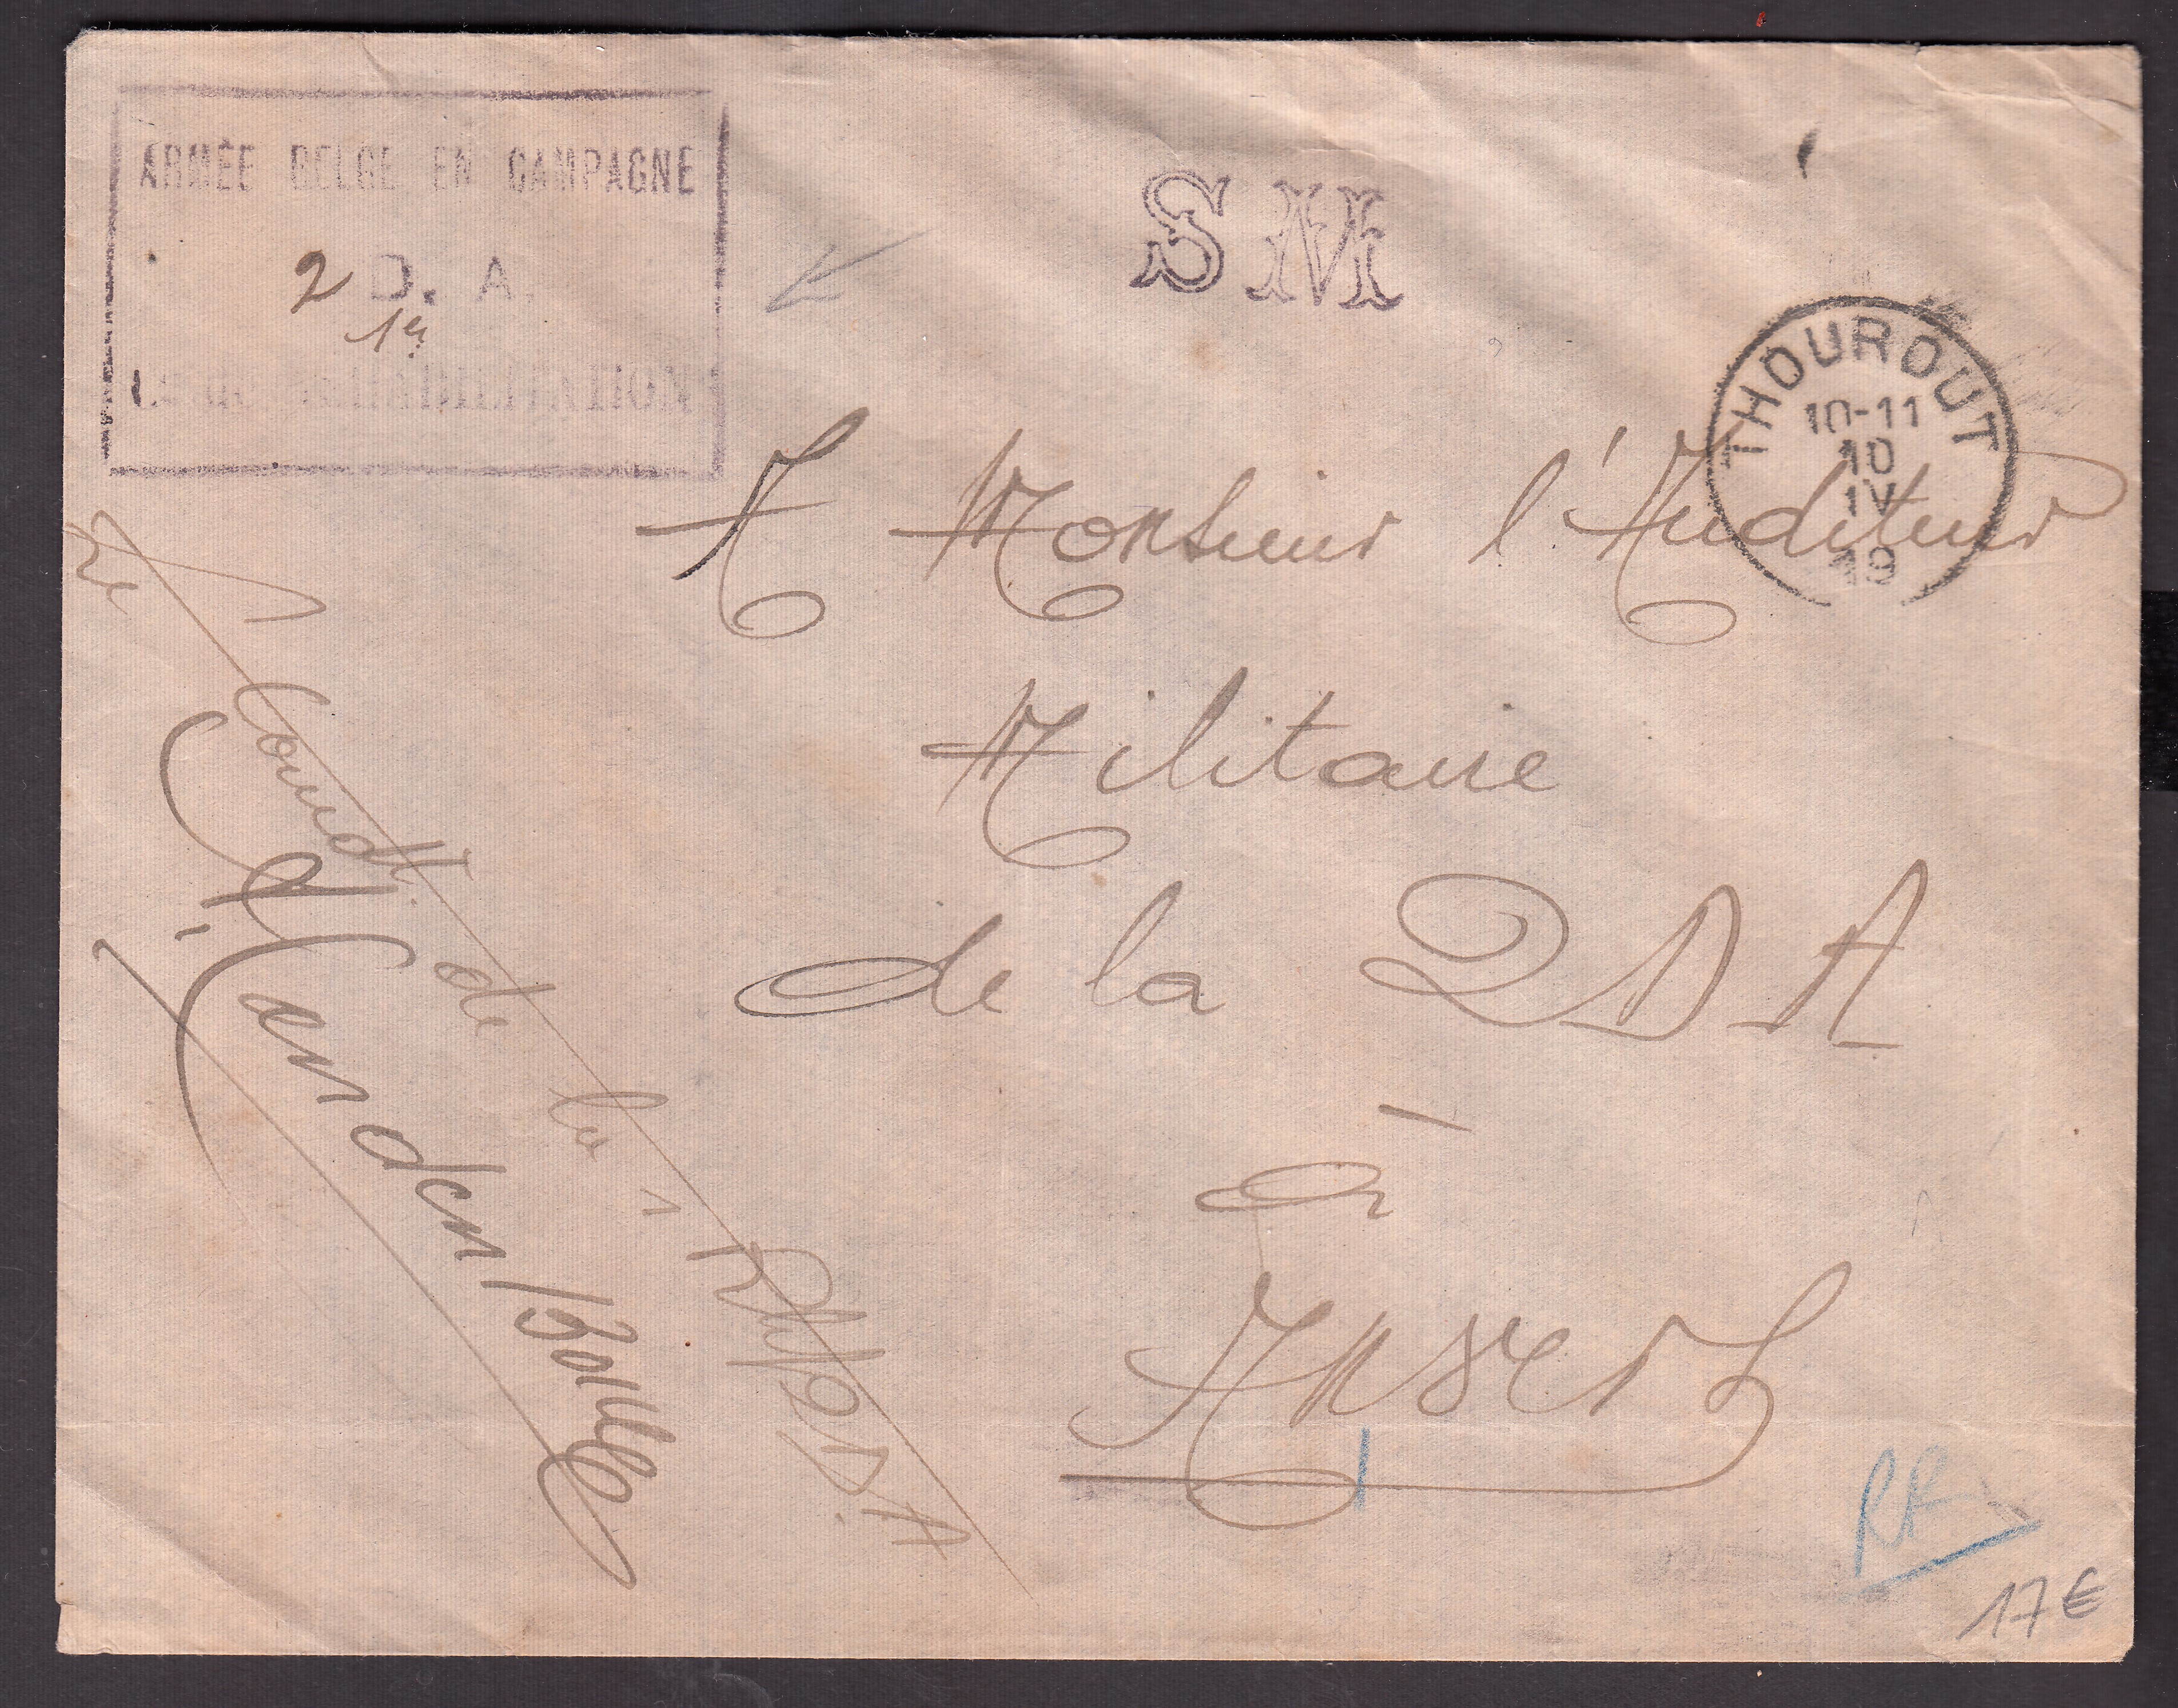 ARMÉE BELGE EN CAMPAGNE
2 D. A.
1er
SM
THOUROUT
10-11
10
IV
19
A Monsieur l'Auditeur
Militaire
de la 2 DA
à
Anvers
Le Comdt. de la
Vanden
RR
17€